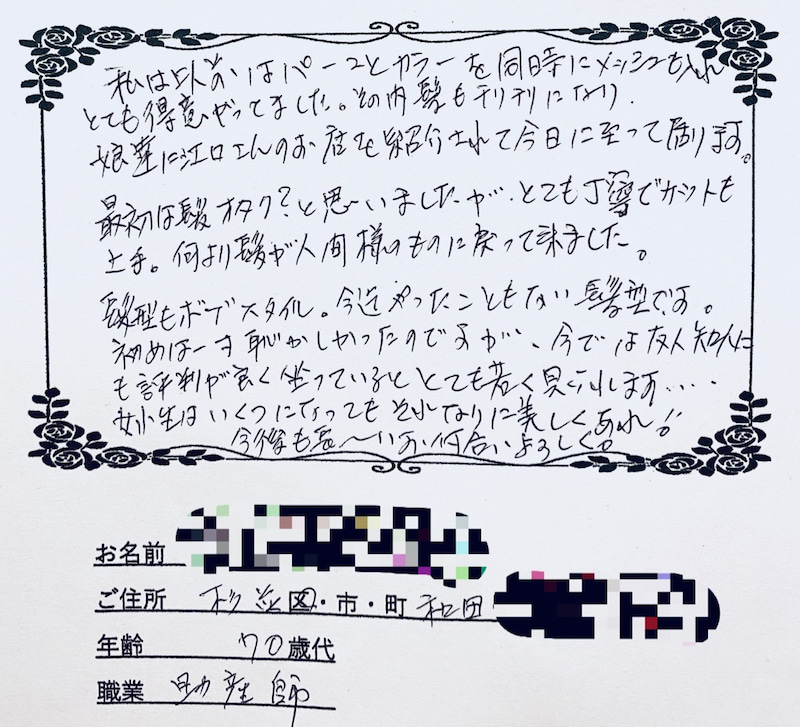 私は以前はパーマとカラーを同時にメッシュも入れ
とても得意がってました。その内髪もチリチリになり、
娘達に江口さんのお店を紹介されて今日に至って居ります。
最初は髪オタク?と思いましたが、とても丁寧でカットも
上手。何より髪が人間様のものに戻って来ました。
髪型もボブスタイル。今迄やったこともない髪型です。
初めは一寸恥かしかったのですが、今では友人知人に
も評判が良く坐っているととても若く見られます・・・・・
女性はいくつになってもそれなりに美しくあれ!!
今後も長〜いお付合いよろしく!!
お名前
ご住所 杉並区・市・町 和田
年齢 70歳代
職業 助産師